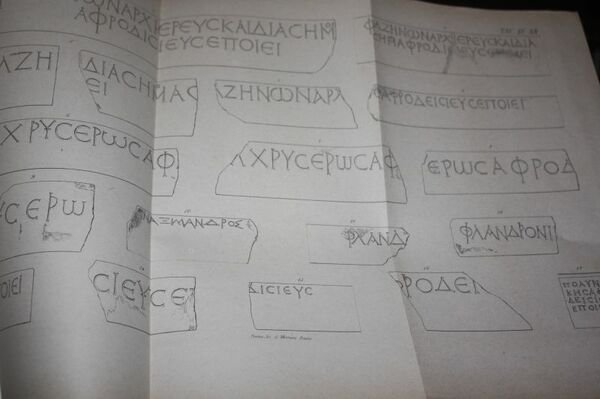 ΝΑΡΧΙΕΡΕΥϹΚΑΙΔΙΑϹΗΜ
ΑΦΡΟΔΙϹΙΕΥϹΕΠΟΙΕΙ
ΦΛΖΗΝΩΝΑΡΧΙΕΡΕΥϹΚΑΙΔΙΑ
ΑΖΗ
ΔΙΑϹΗΜΑϹ
ΕΙ
ΖΗΝΩΝΑΡΧ
ΑΦΡΟΔΕΙϹΙΕΥϹΕΠΟΙΕΙ
ΧΡΥϹΕΡΩϹΑΦ
ΛΧΡΥϹΕΡΩϹΑΦ
ΕΡΩϹΑΦΡΟΔ
ϹΕΡΩ
ΑΞΜΑΝΔΡΟΣ
ΦΛΑΝΔΡΟΝΙ
ΠΟΙΕΙ
ϹΙΕΥϹΕ
ΙϹΙΕΥϹ
ΡΟΔΕΙ
ΠΟΛΥΝ
ΚΗϹΑΦ
ΔΕΙϹΙ
ΕΠΟΙ